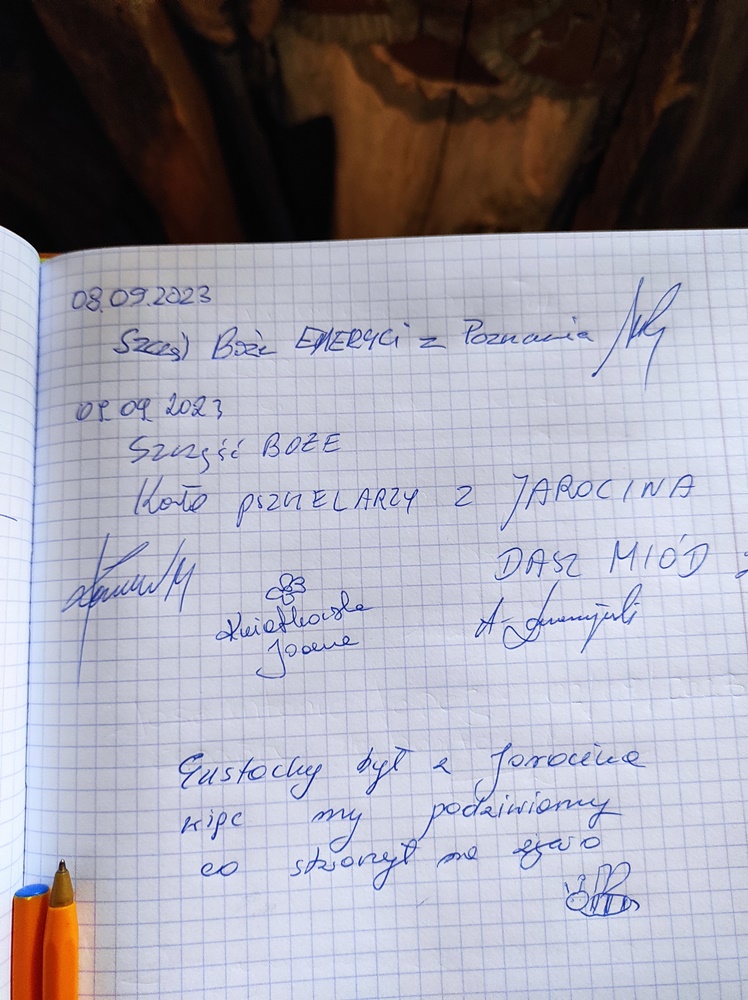 08.09.2023
Szczęść Boże EMERYCI z Poznania
09.09.2023
Szczęść BOŻE
Koło PSZCZELARZY Z JAROCINA
DASZ MIÓD
Kwiatkowska
Joanna
Eustachy był z Jarocina
więc my podziwiamy
co stworzył na żywo